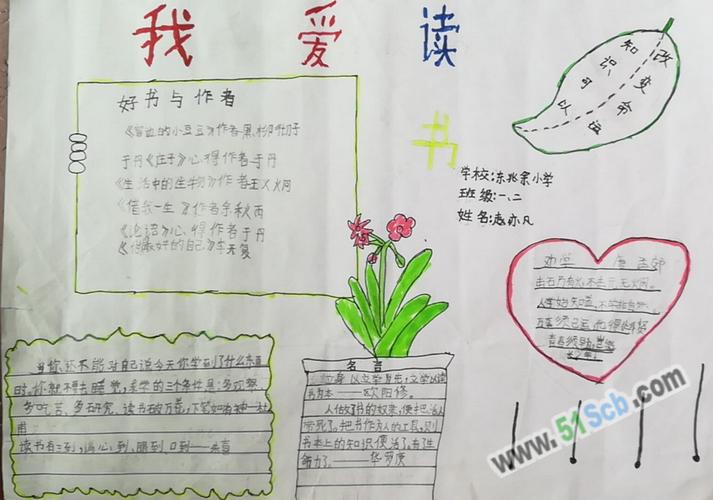 我 爱 读
书
好书与作者
《窗边的小豆豆》作者黑柳彻子
于丹《庄子》心得作者于丹
《生活中的生物》作者王
《借我一生》作者余秋雨
《论语》心得作者于丹
最好的自己》李开复
改变命运
知识可以
学校:东兆余小学
班级:一、二
姓名:赵亦凡
劝学
当你还不能对自己说今天你学到了什么东西
时,你就不要去睡觉,求学的三个条件是:多观察
多吃苦、多研究。读书破万卷,下笔如有神—杜
甫
读书有三到,谓心到、眼到、口到——朱熹
名言
立身以立学为先,立学以读
书为本——欧阳修。
人做了书的奴隶,便把活人
带死了。把书作为人的工具,则
书本上的知识便活了。有了生
命力了。——华罗庚
www.51Scb.com